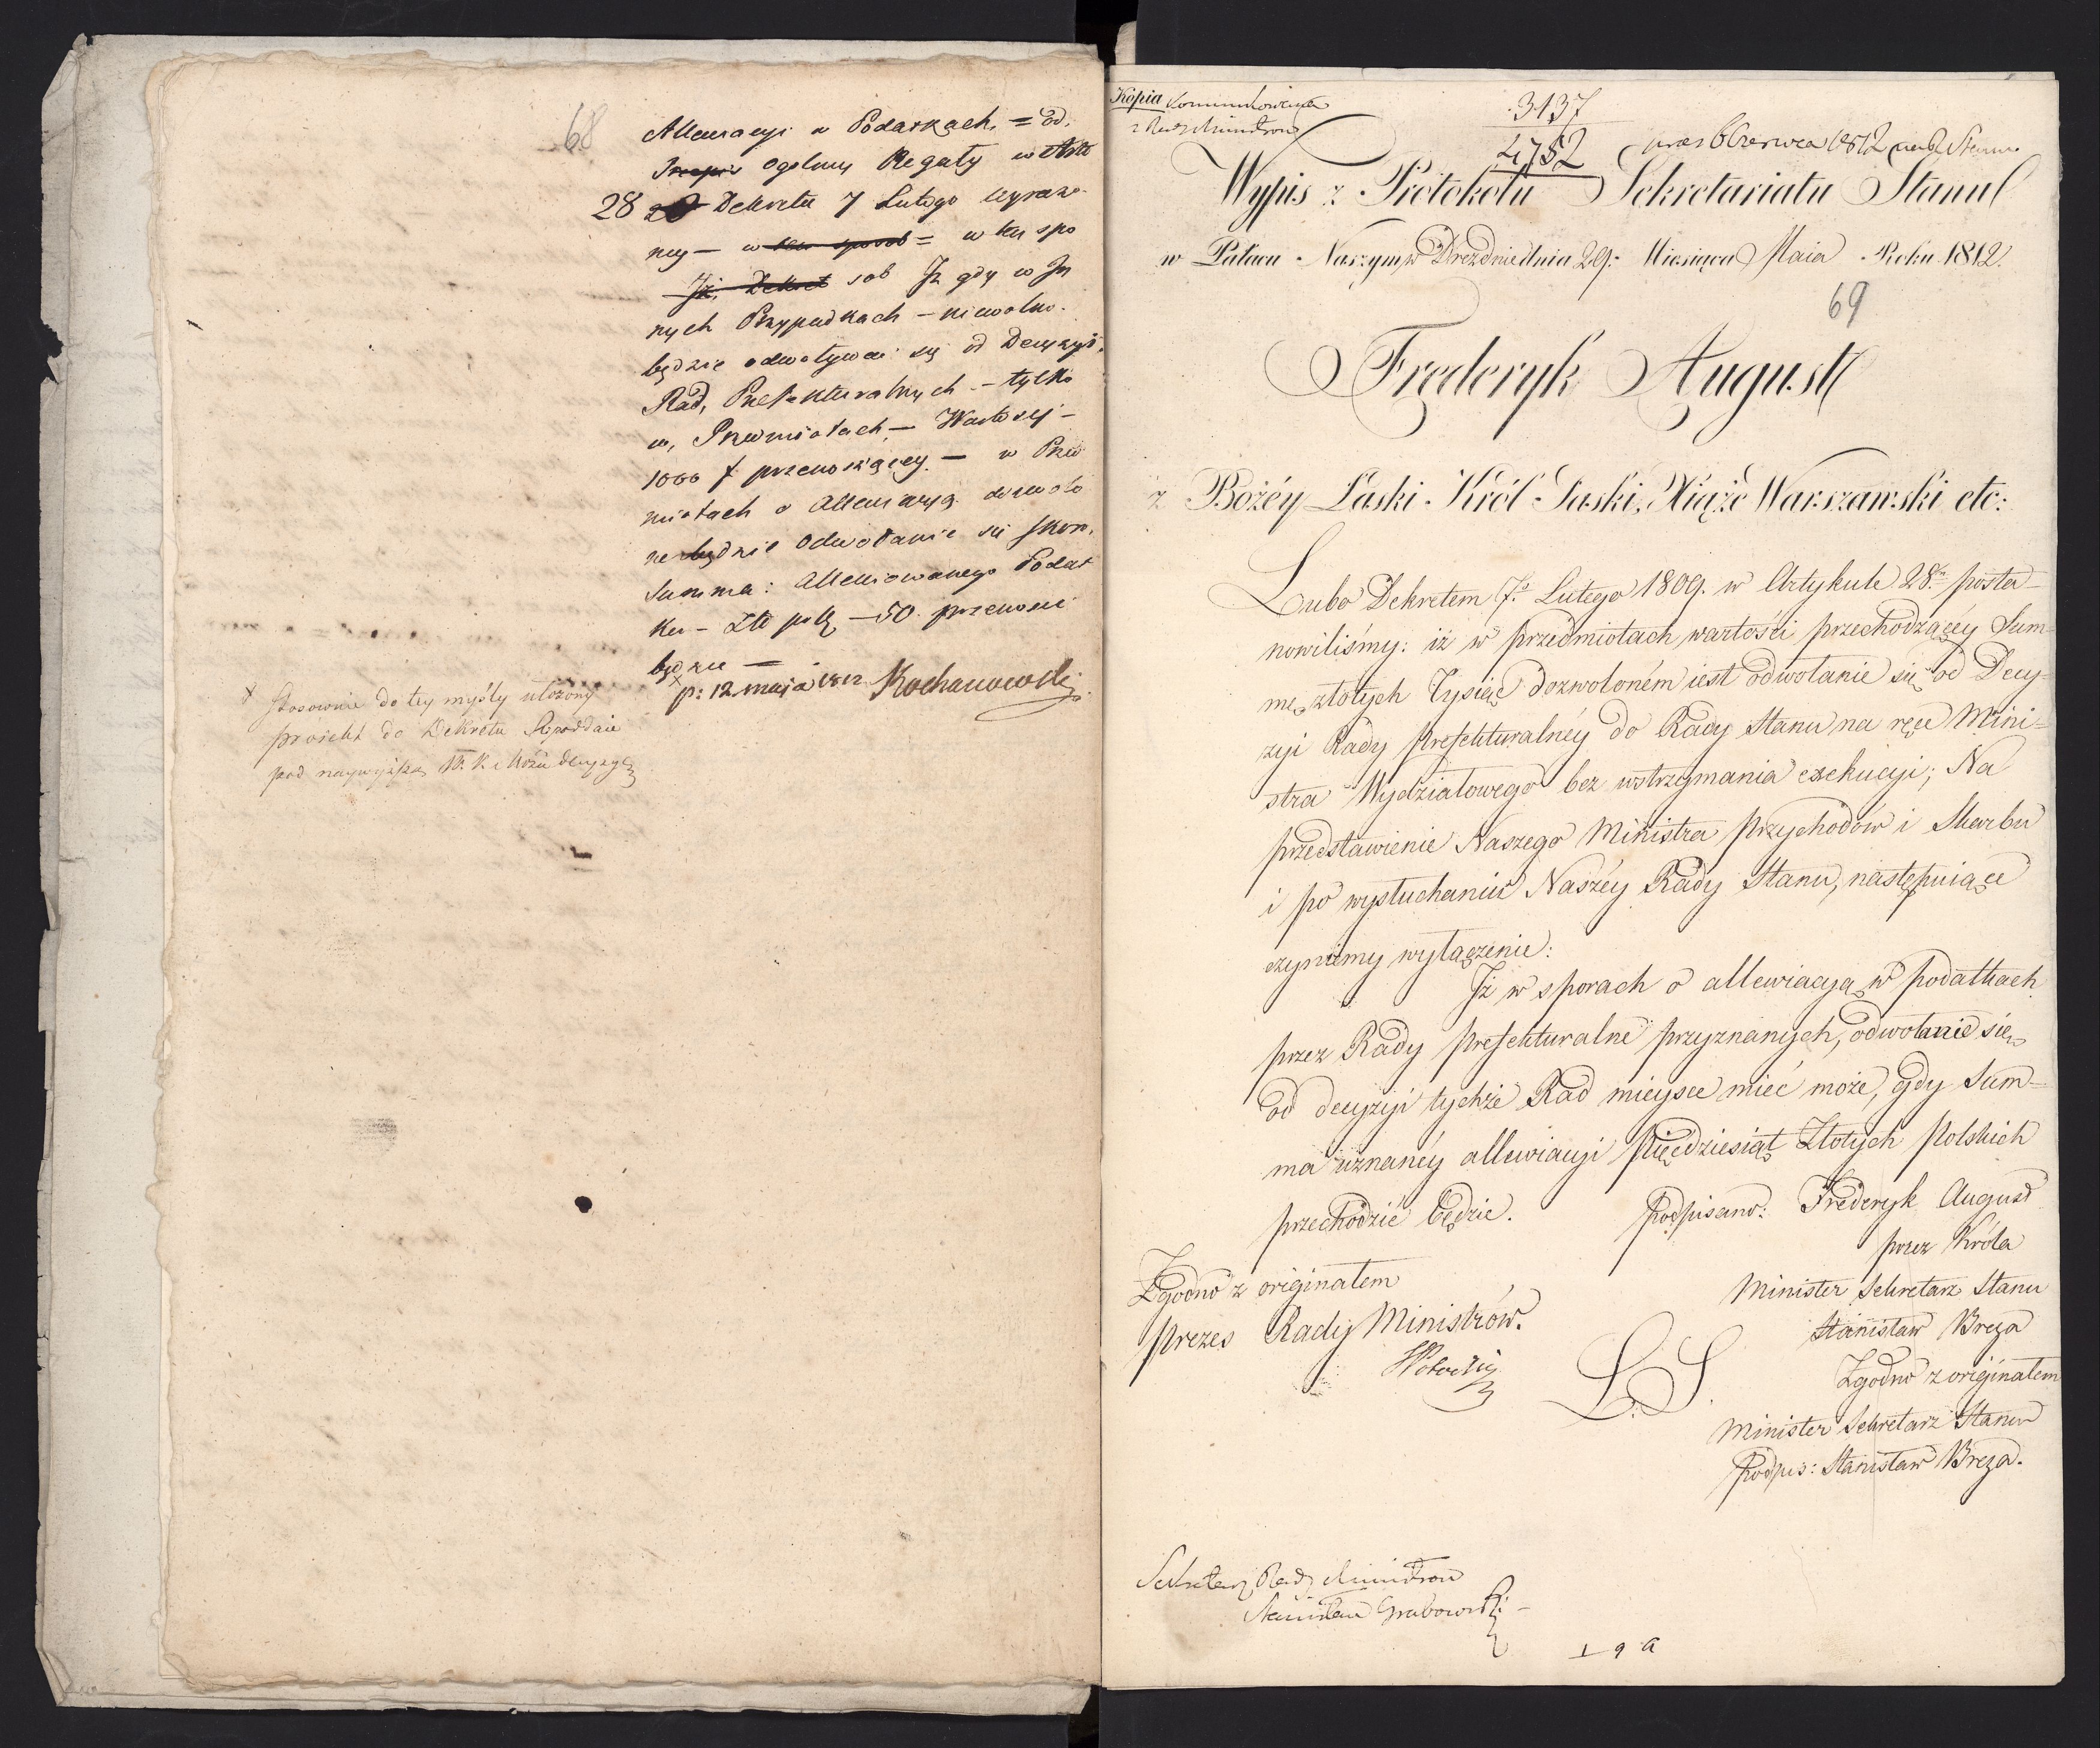 68
Allewiacyi w Podatkach = od
ogolney Reguły w Art
28 Dekretu 7 Lutego wyrażo
ney — w ten sposob = w ten spo
Iż Dekret sob Iż gdy w In
nych Przypadkach — niewolno
będzie odwoływać się od Decyzyi
Rad, Prefekturalnych — tylko
w, Przedmiotach — Wartosci —
1000 f przenoszącey — w Przed
miotach o Allewiacyą dozwolo
ne będzie odwołanie się skoro
Summa: Allewiowanego Podat
ku — Złł pols — 50. przenosić
będzie —
p: 12 maja 1812 Kochanowski
Stosownie do tey myśly ułożony
proiekt do Dekretu Rpoddaie
pod naywyższą W. K. Mści decyzyą
Kopia kommunikowana
z Rady Ministrow
3137
4752
przes 6 Czerwca 1812 na R Stanu
Wypis z Protokołu Sekretariatu Stanu
w Pałacu Naszym w Dreznie dnia 29. Miesiąca Maia Roku 1812.
69
Frederyk August
z Bożéy Łaski Król Saski, Xiążę Warszawski etc:
Lubo Dekretem 7. Lutego 1809. w Artykule 28. posta-
nowiliśmy: iż w przedmiotach wartości przechodzącéy Sum-
mę złotych Tysiąc dozwoloném iest odwołanie się od Decy-
zyi Rady Prefekturalnéy do Rady Stanu na ręce Mini-
stra Wydziałowego bez wstrzymania exekucyi; Na
przedstawienie Naszego Ministra Przychodów i Skarbu
i po wysłuchaniu Naszéy Rady Stanu, następuiące
czyniemy wyłączenie:
Iż w sporach o allewiacyą w podatkach
przez Rady Prefekturalne przyznanych, odwołanie się
od decyzyi tychże Rad mieysce mieć może, gdy Sum-
ma uznanéy allewiacyi Pięćdziesiąt Złotych Polskich
przechodzić będzie. Podpisano: Frederyk August
przez Króla
Minister Sekretarz Stanu
Stanisław Breza
Zgodno z originałem
Prezes Rady Ministrów.
SPotocki
L. S.
Zgodno z originałem
Minister Sekretarz Stanu
Podpis: Stanisław Breza.
Sekretarz Rady Ministrow
Stanisław Grabowski
1 9 a